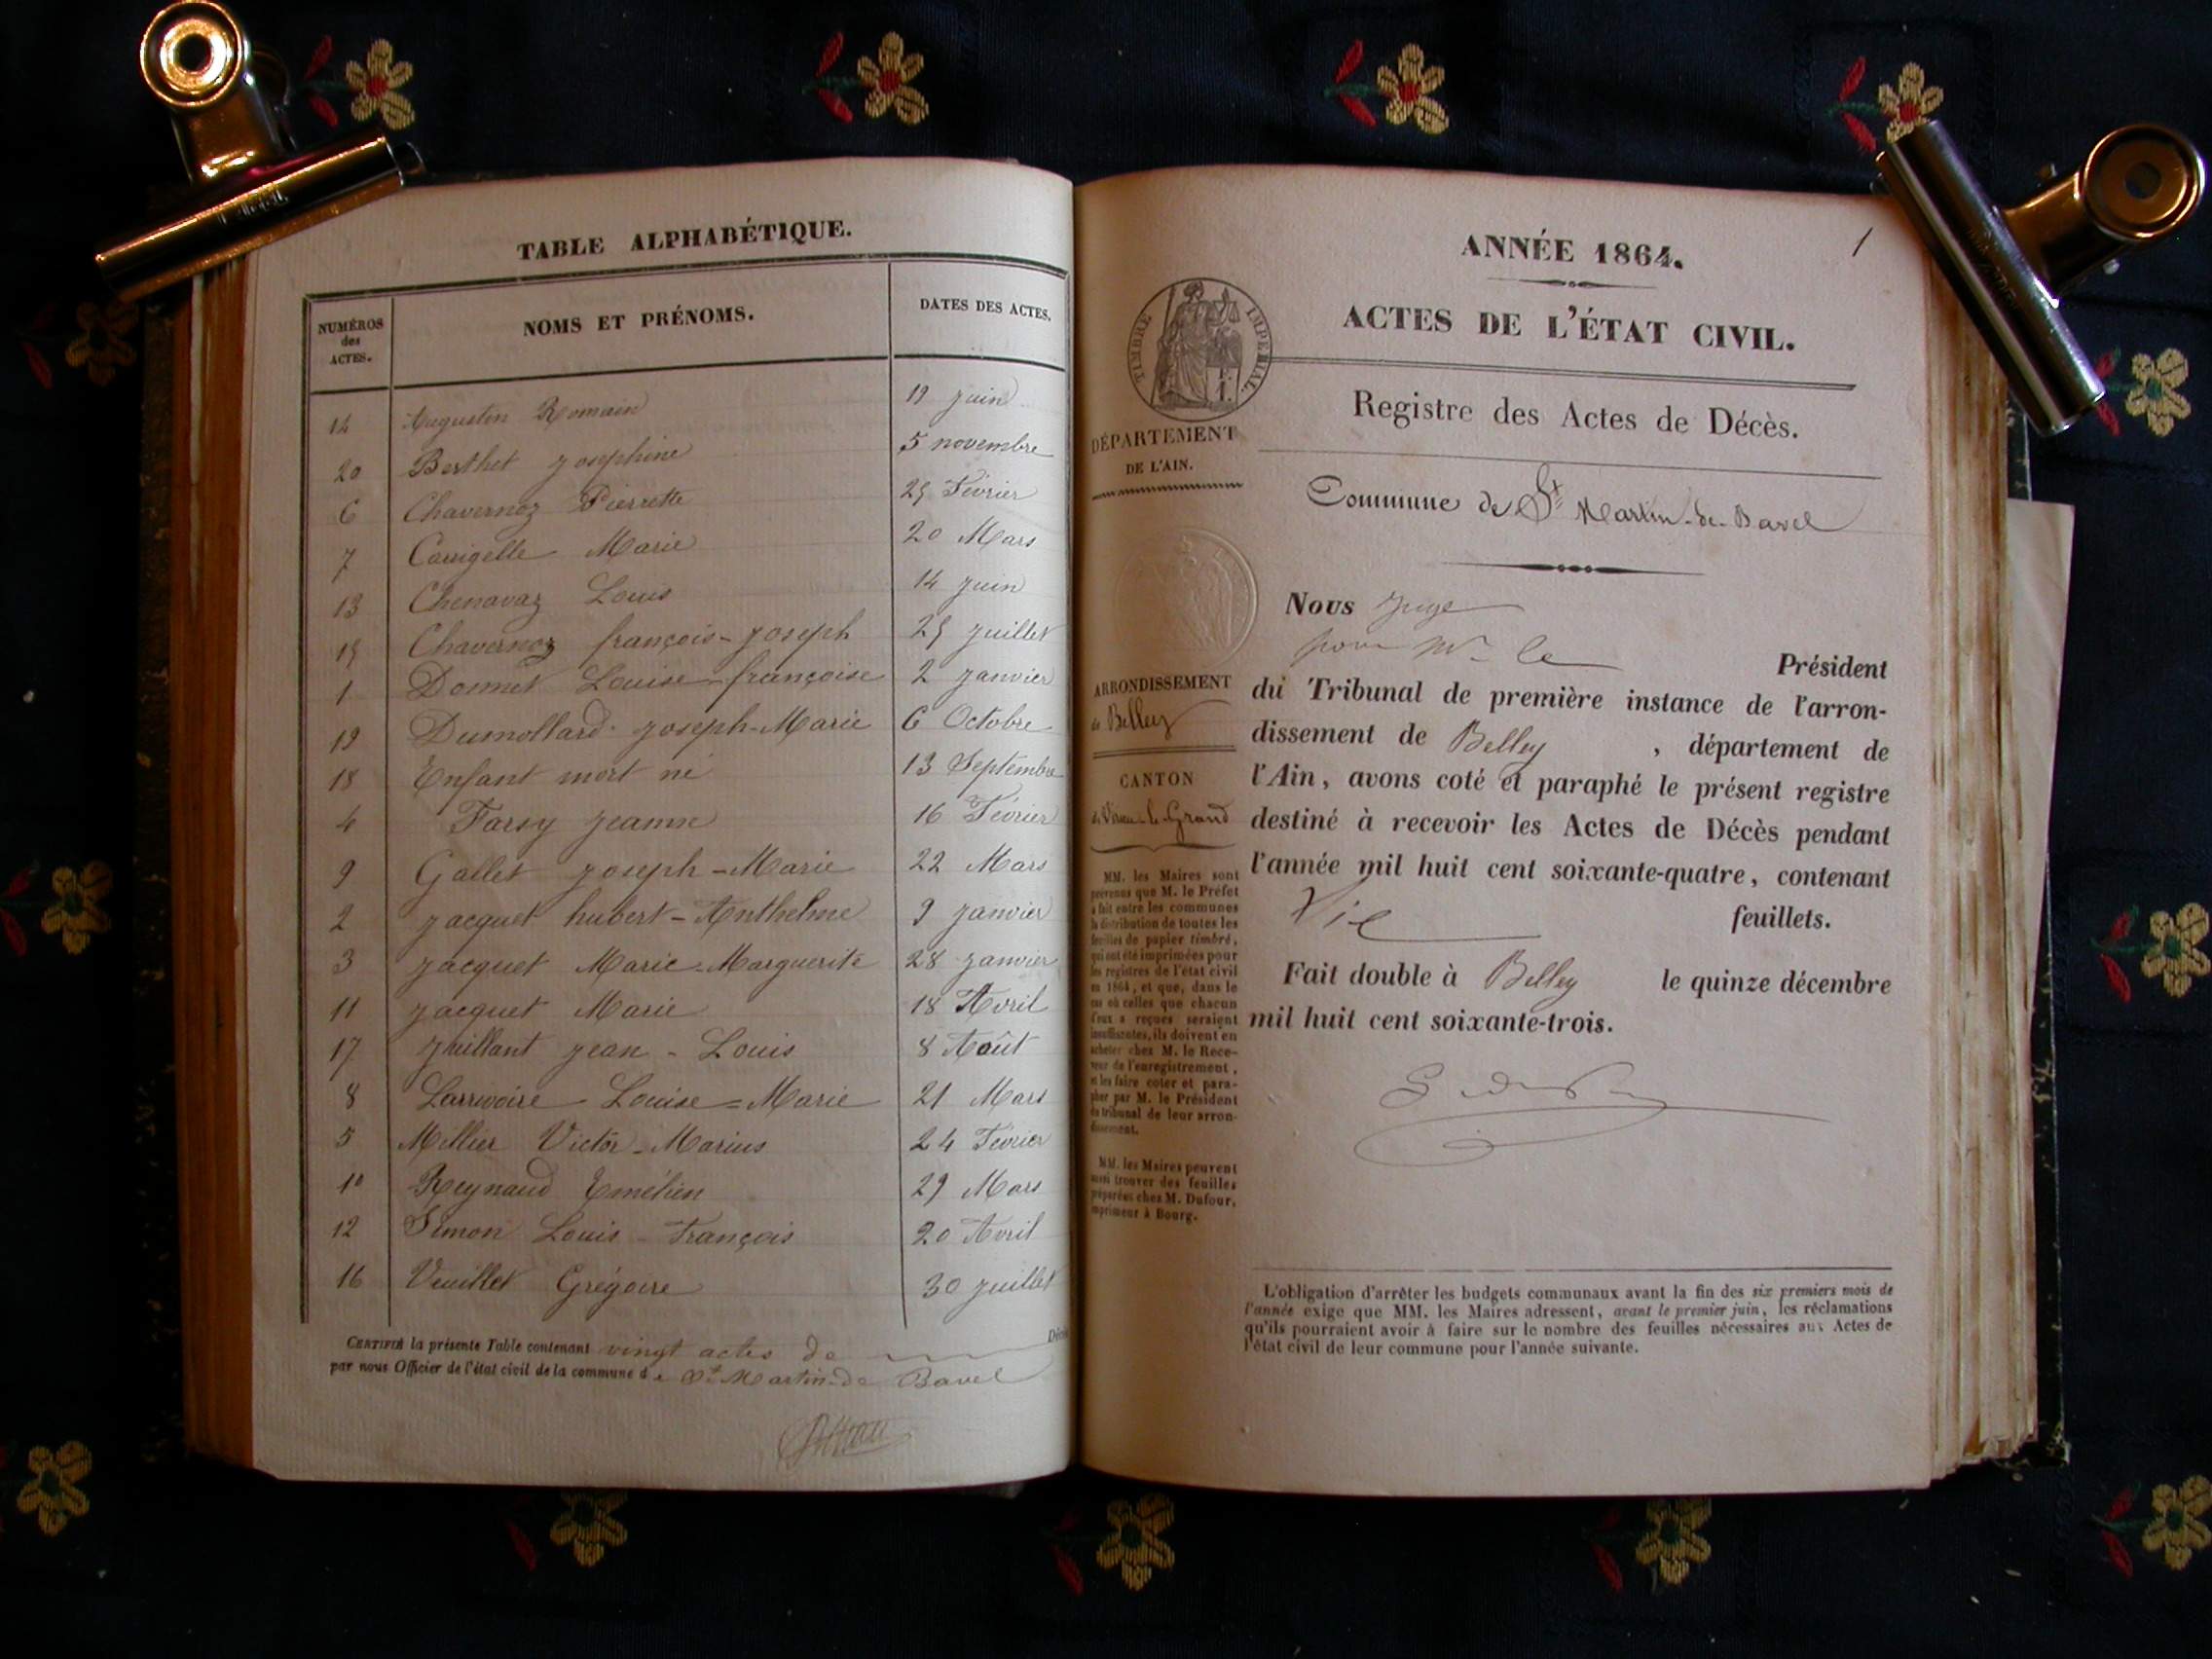 TABLE ALPHABÉTIQUE.
NUMÉROS des ACTES.
NOMS ET PRÉNOMS.
DATES DES ACTES.
14 Augustin Romain 19 juin
20 Berthet Josephine 5 novembre
6 Chavernoz Pierrette 25 Février
7 Marie 20 Mars
13 Chenavaz Louis 14 juin
15 Chavernoz françois-joseph 25 juillet
1 Donnet Louise-françoise 2 janvier
19 Dumollard joseph-Marie 6 Octobre
18 Enfant mort né 13 Septembre
4 Farsy jeanne 16 Février
9 Gallet joseph-Marie 22 Mars
2 jacquet hubert-Anthelme 9 janvier
3 jacquet Marie-Marguerite 28 janvier
11 jacquet Marie 18 Avril
17 juillant jean-Louis 8 Août
8 Larrivoire Louise=Marie 21 Mars
5 Millier Victor-Marius 24 Février
10 Reynaud Emélien 29 Mars
12 Simon Louis-François 20 Avril
16 Veuillet Grégoire 30 juillet
CERTIFIÉ la présente Table contenant vingt actes de
par nous Officier de l'état civil de la commune de St Martin-de Bavel
1
ANNÉE 1864.
ACTES DE L'ÉTAT CIVIL.
TIMBRE IMPERIAL.
Registre des Actes de Décès.
DÉPARTEMENT
DE L'AIN.
Commune de St Martin-de-Bavel
Nous Juge
pour Mr le
Président
ARRONDISSEMENT
de Belley
du Tribunal de première instance de l'arron-
dissement de Belley, département de
l'Ain, avons coté et paraphé le présent registre
destiné à recevoir les Actes de Décès pendant
l'année mil huit cent soixante-quatre, contenant
feuillets.
Fait double à Belley le quinze décembre
mil huit cent soixante-trois.
CANTON
de Virieu-le-Grand
MM. les Maires sont
prévenus que M. le Préfet
a fait entre les communes
la distribution de toutes les
feuilles de papier timbré,
qui ont été imprimées pour
les registres de l'état civil
en 1864, et que, dans le
cas où celles que chacun
d'eux a reçues seraient
insuffisantes, ils doivent en
acheter chez M. le Rece-
veur de l'enregistrement,
et les faire coter et para-
pher par M. le Président
du tribunal de leur arron-
dissement.
MM. les Maires peuvent
aussi trouver des feuilles
préparées chez M. Dufour,
imprimeur à Bourg.
L'obligation d'arrêter les budgets communaux avant la fin des six premiers mois de
l'année exige que MM. les Maires adressent, avant le premier juin, les réclamations
qu'ils pourraient avoir à faire sur le nombre des feuilles nécessaires aux Actes de
l'état civil de leur commune pour l'année suivante.